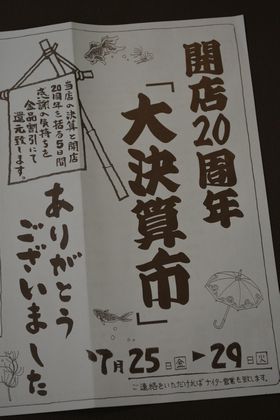 開店20周年
「大決算市」
当店の決算と開店
20周年を祝う5日間
感謝の気持ちを
全品割引にて
還元致します。
ありがとう
ございました
7月25日金▶29日火
ご連絡をいただければナイター営業も致します。